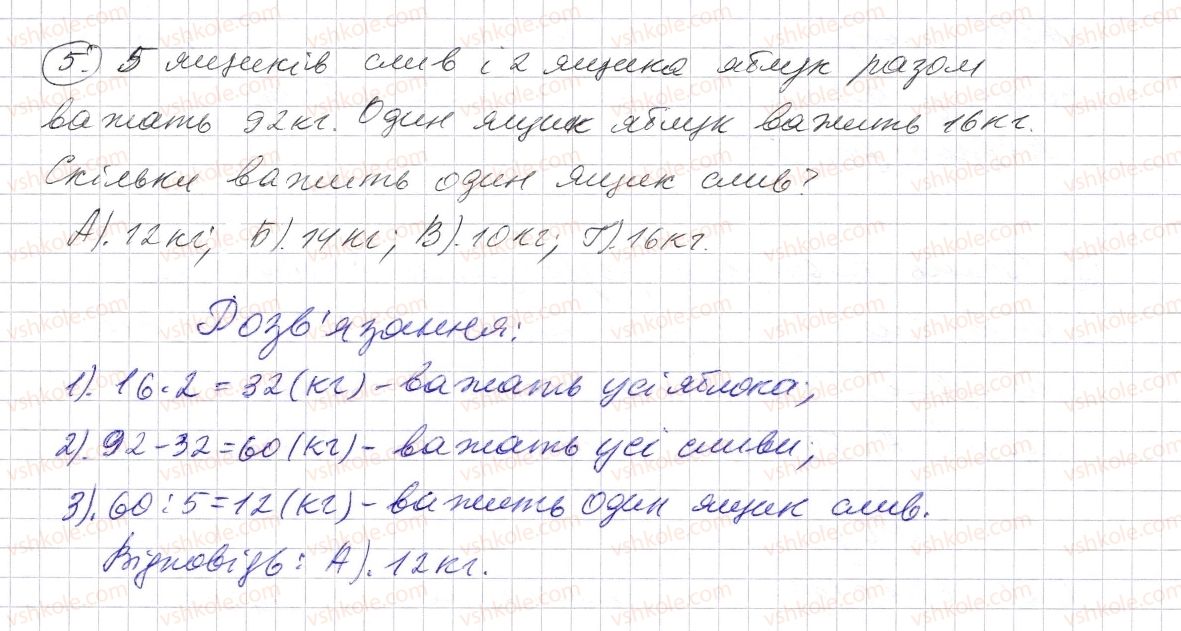 5. 5 ящиків слив і 2 ящика яблук разом
важать 92кг. Один ящик яблук важить 16кг.
Скільки важить один ящик слив?
А). 12кг; Б). 14кг; В). 10кг; Г). 16кг.
Розв'язання:
1). 16·2=32(кг) – важать усі яблока;
2). 92-32=60(кг) – важать усі сливи;
3). 60:5=12(кг) – важить один ящик слив.
Відповідь: А). 12кг.
vshkole.com